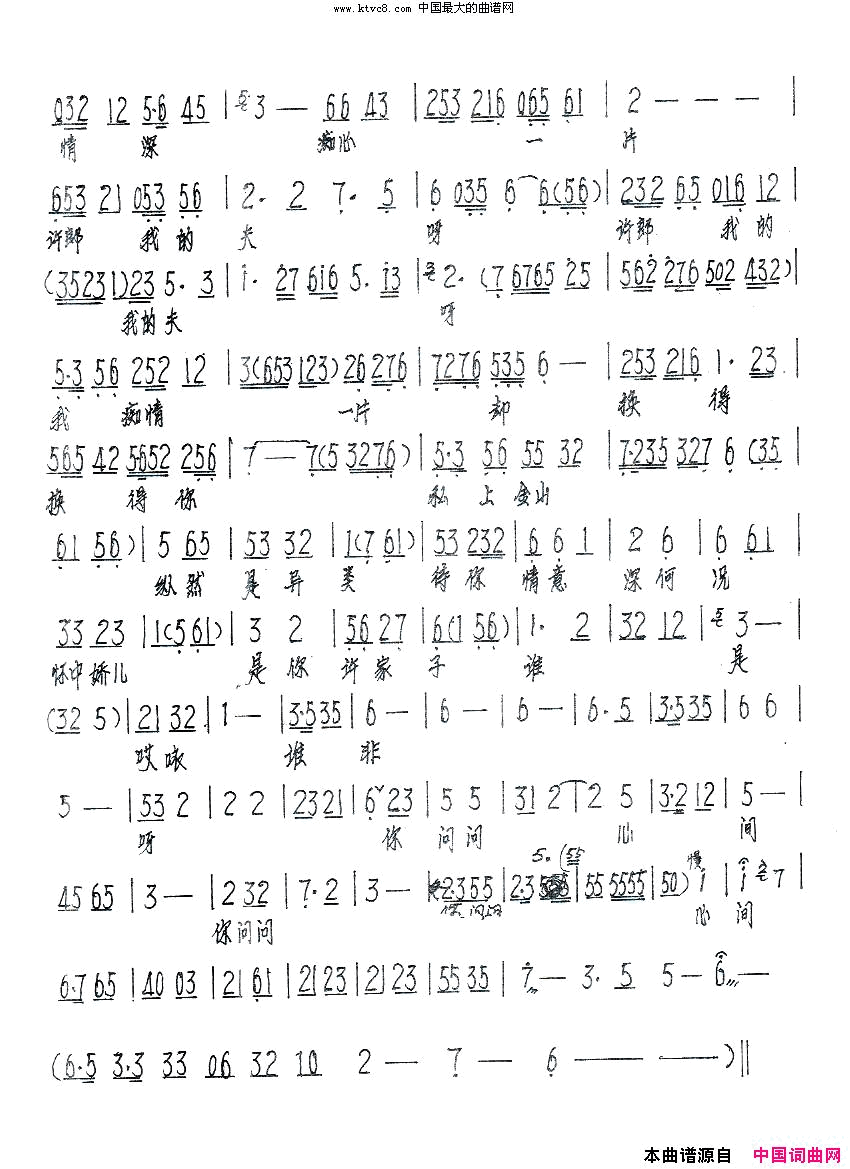 www.ktvc8.com 中国最大的曲谱网
032 12 5·6 45 | 3 — 66 43 | 253 216 065 61 | 2 — — — |
情 深 痴心 一 片
653 21 053 56 | 2· 2 7· 5 | 6 035 6 6(56) | 232 65 016 12 |
许郎 我的 夫 呀 许郎 我的
(35231)23 5· 3 | 1· 27 616 5· 13 | 2· (7 6765 25 | 562 276 502 432) |
我的夫 呀
5·3 56 252 12 | 3(653 123) 26 276 | 7276 535 6 — | 253 216 1· 23 |
我 痴情 一片 却 换 得
565 42 5652 256 | 7 — 7(5 3276) | 5·3 56 55 32 | 7·235 327 6 (35 |
换 得你 私上金山
61 56) | 5 65 | 53 32 | 1(7 61) | 53 232 | 6 6 1 | 2 6 | 6 61 |
纵然 是异 类 待你 情意 深何 况
33 23 | 1(5 61) | 3 2 | 56 27 | 6(1 56) | 1· 2 | 32 12 | 3 — |
怀中娇儿 是你 许家 子 谁 是
(32 5) | 21 32 | 1 — | 3·535 | 6 — | 6 — | 6 — | 6· 5 | 3·535 | 6 6 |
哎咳 谁 非
5 — | 53 2 | 2 2 | 2321 | 6 23 | 5 5 | 31 2 | 2 5 | 3·2 12 | 5 — |
呀 你 问问 心 间
5· (55
慢
45 65 | 3 — | 2 32 | 7· 2 | 3 — | 2355 | 2·3 | 55 5555 | 50) 1 | 1 7 |
你问问 你 问问 心 间
6·7 65 | 40 03 | 21 61 | 21 23 | 21 23 | 55 35 | 7 — 3· 5 5 — 6 —
(6·5 3·3 33 06 32 10 2 — 7 — 6 — — —) ||
本曲谱源自 中国词曲网